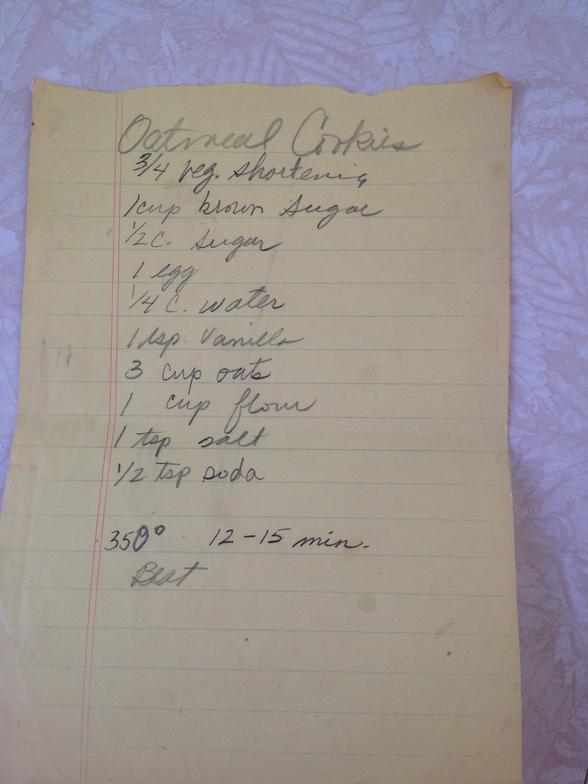 Oatmeal Cookies
3/4 veg. shortening
1 cup brown sugar
1/2 c. sugar
1 egg
1/4 c. water
1 tsp vanilla
3 cup oats
1 cup flour
1 tsp salt
1/2 tsp soda
350° 12-15 min.
Best